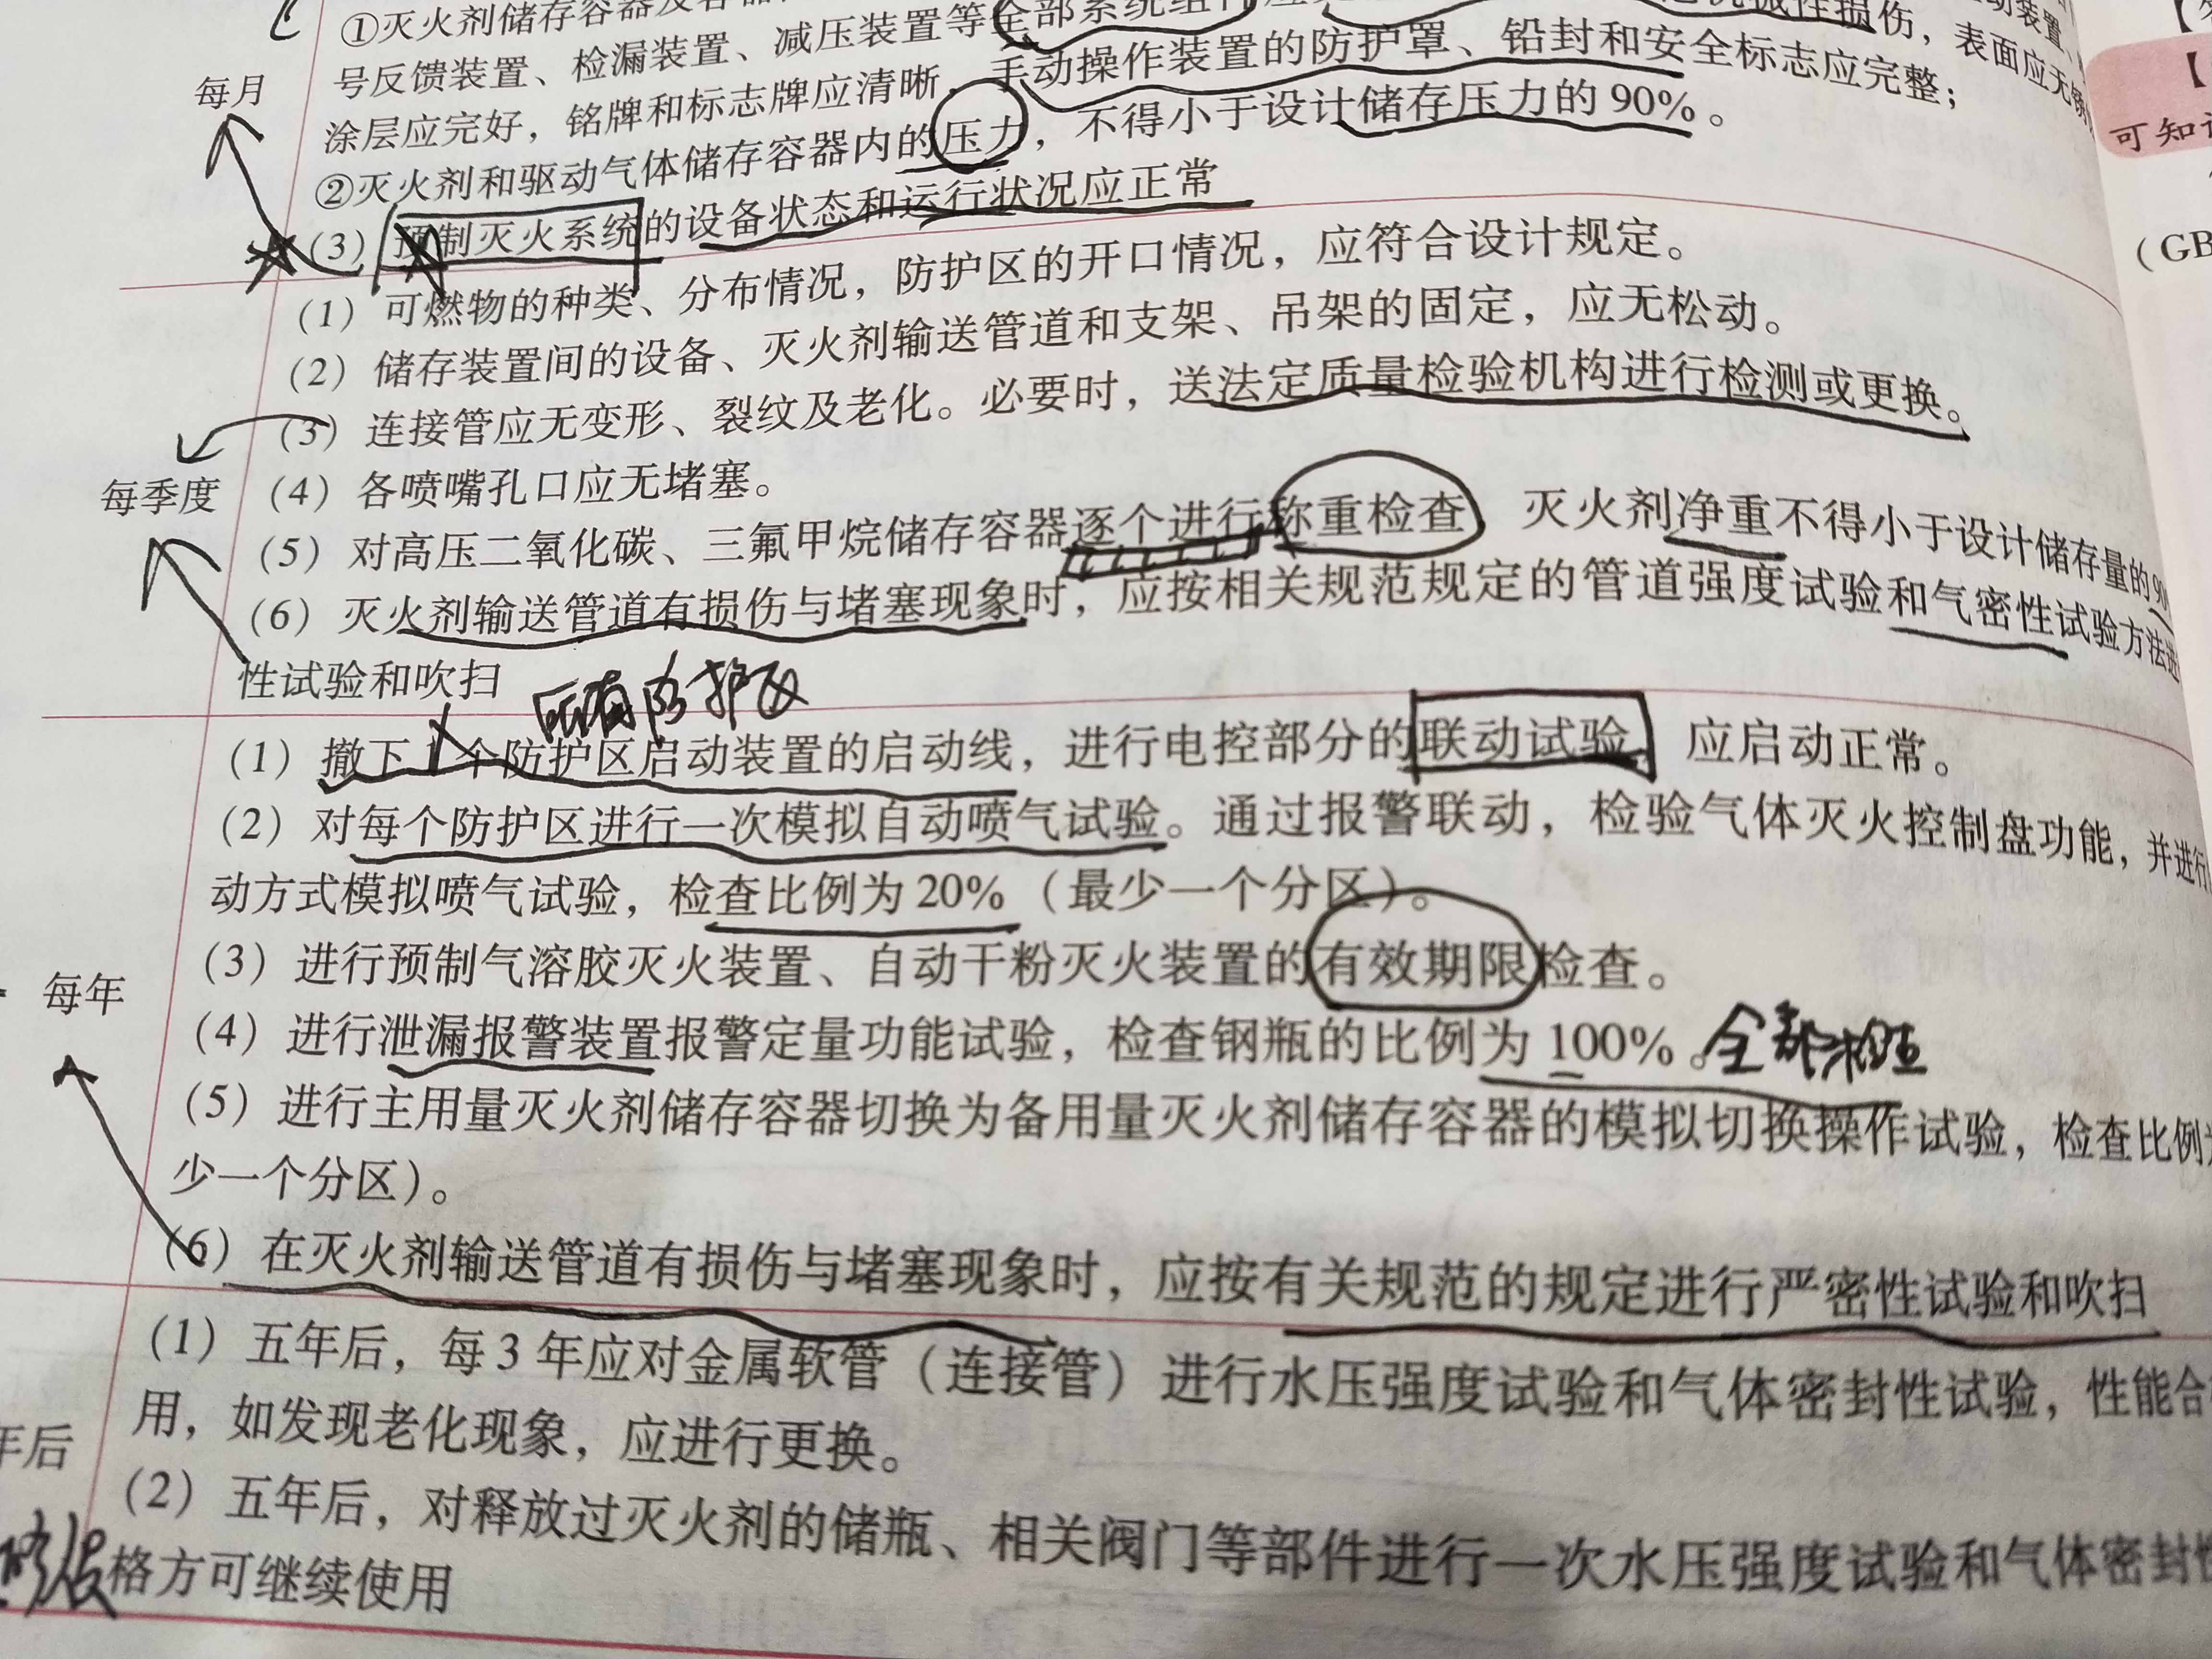 ①灭火剂储存容器及容器
号反馈装置、检漏装置、减压装置等全部系统组件
机械性损伤，表面应无锈
涂层应完好，铭牌和标志牌应清晰，手动操作装置的防护罩、铅封和安全标志应完整；
②灭火剂和驱动气体储存容器内的压力，不得小于设计储存压力的 90%。
每月
(3) 预制灭火系统的设备状态和运行状况应正常
(1) 可燃物的种类、分布情况，防护区的开口情况，应符合设计规定。
(2) 储存装置间的设备、灭火剂输送管道和支架、吊架的固定，应无松动。
(3) 连接管应无变形、裂纹及老化。必要时，送法定质量检验机构进行检测或更换。
每季度
(4) 各喷嘴孔口应无堵塞。
(5) 对高压二氧化碳、三氟甲烷储存容器逐个进行称重检查，灭火剂净重不得小于设计储存量的 90
(6) 灭火剂输送管道有损伤与堵塞现象时，应按相关规范规定的管道强度试验和气密性试验方法进
性试验和吹扫
所有防护区
(1) 撤下 1 个防护区启动装置的启动线，进行电控部分的联动试验，应启动正常。
(2) 对每个防护区进行一次模拟自动喷气试验。通过报警联动，检验气体灭火控制盘功能，并进行
动方式模拟喷气试验，检查比例为 20%（最少一个分区）。
(3) 进行预制气溶胶灭火装置、自动干粉灭火装置的有效期限检查。
每年
(4) 进行泄漏报警装置报警定量功能试验，检查钢瓶的比例为 100%。全部检查
(5) 进行主用量灭火剂储存容器切换为备用量灭火剂储存容器的模拟切换操作试验，检查比例
少一个分区）。
(6) 在灭火剂输送管道有损伤与堵塞现象时，应按有关规范的规定进行严密性试验和吹扫
(1) 五年后，每 3 年应对金属软管（连接管）进行水压强度试验和气体密封性试验，性能合
用，如发现老化现象，应进行更换。
年后
(2) 五年后，对释放过灭火剂的储瓶、相关阀门等部件进行一次水压强度试验和气体密封性
格方可继续使用
可知
(GB